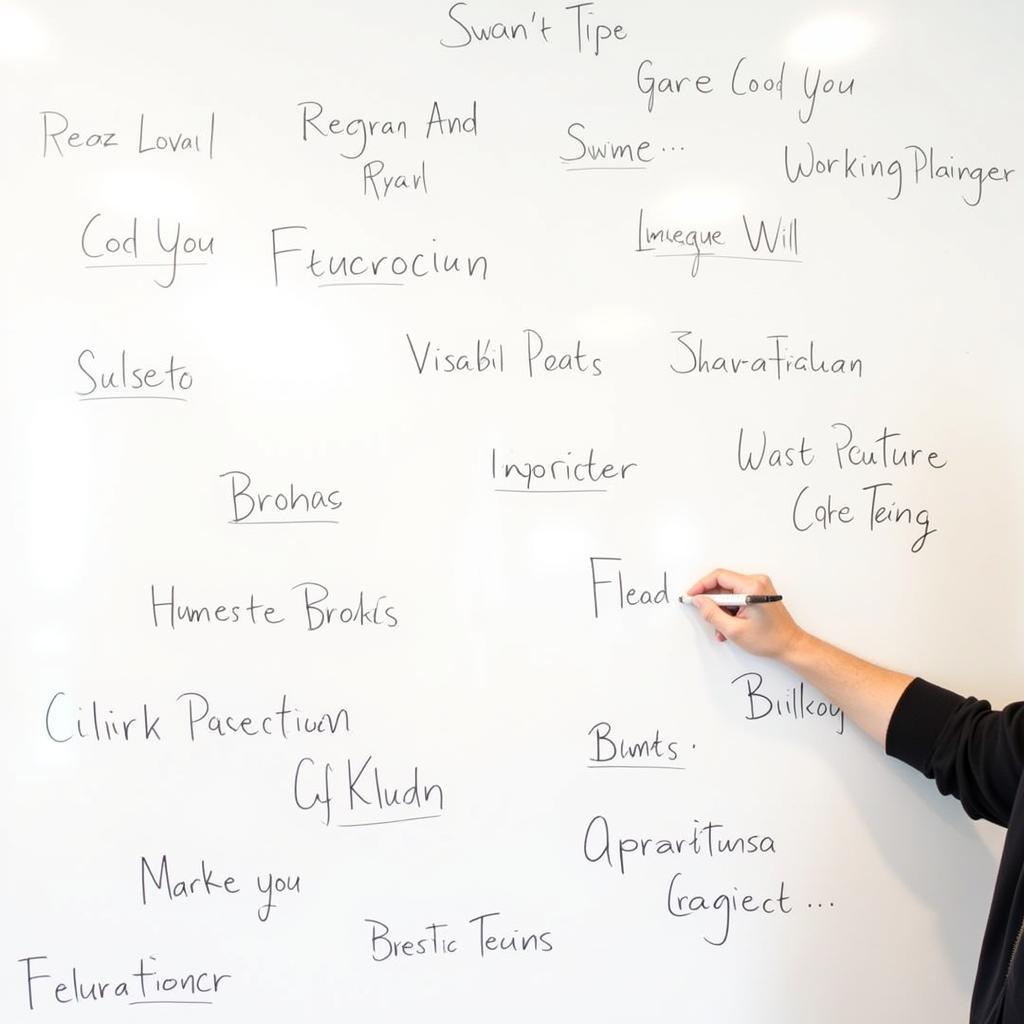 Swan't Tipe
Gare Cood You
Reaz Lovail
Regran And
Ryarl
Swme...
Working Plainger
Cod You
Fteucrociun
Will
Sulseto
Visabil Peats
3haraFrialian
Brohas
Inporicter
Wast Pcuture
Care Teing
Humeste Brokis
Flead
Ciliirk Pacectiuon
Biilkoy
Bumts.
Cf Kludn
Aprariturisa
Cragiect...
Marke you
Brestic Teuins
Felurationcr